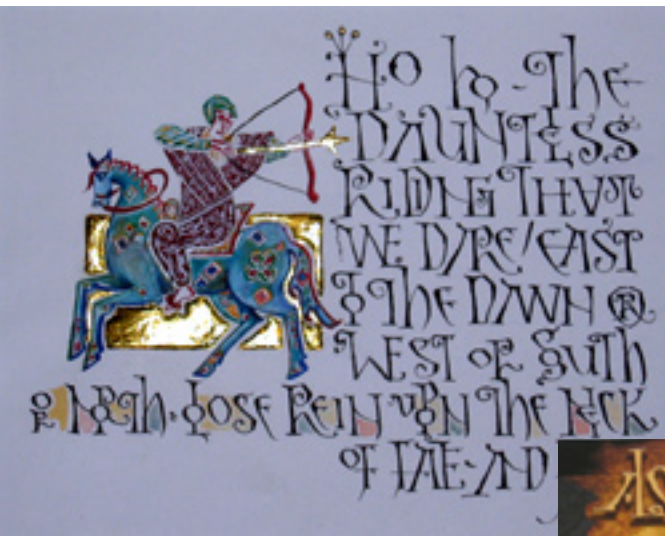 HO ho - The
DAUNTLESS
RIDING THAT
WE DARE / EAST
TO The DAWN OR
WEST OR SOUTh
OR NORTh. LOOSE REIN UPON The NECK
OF FATE - AND